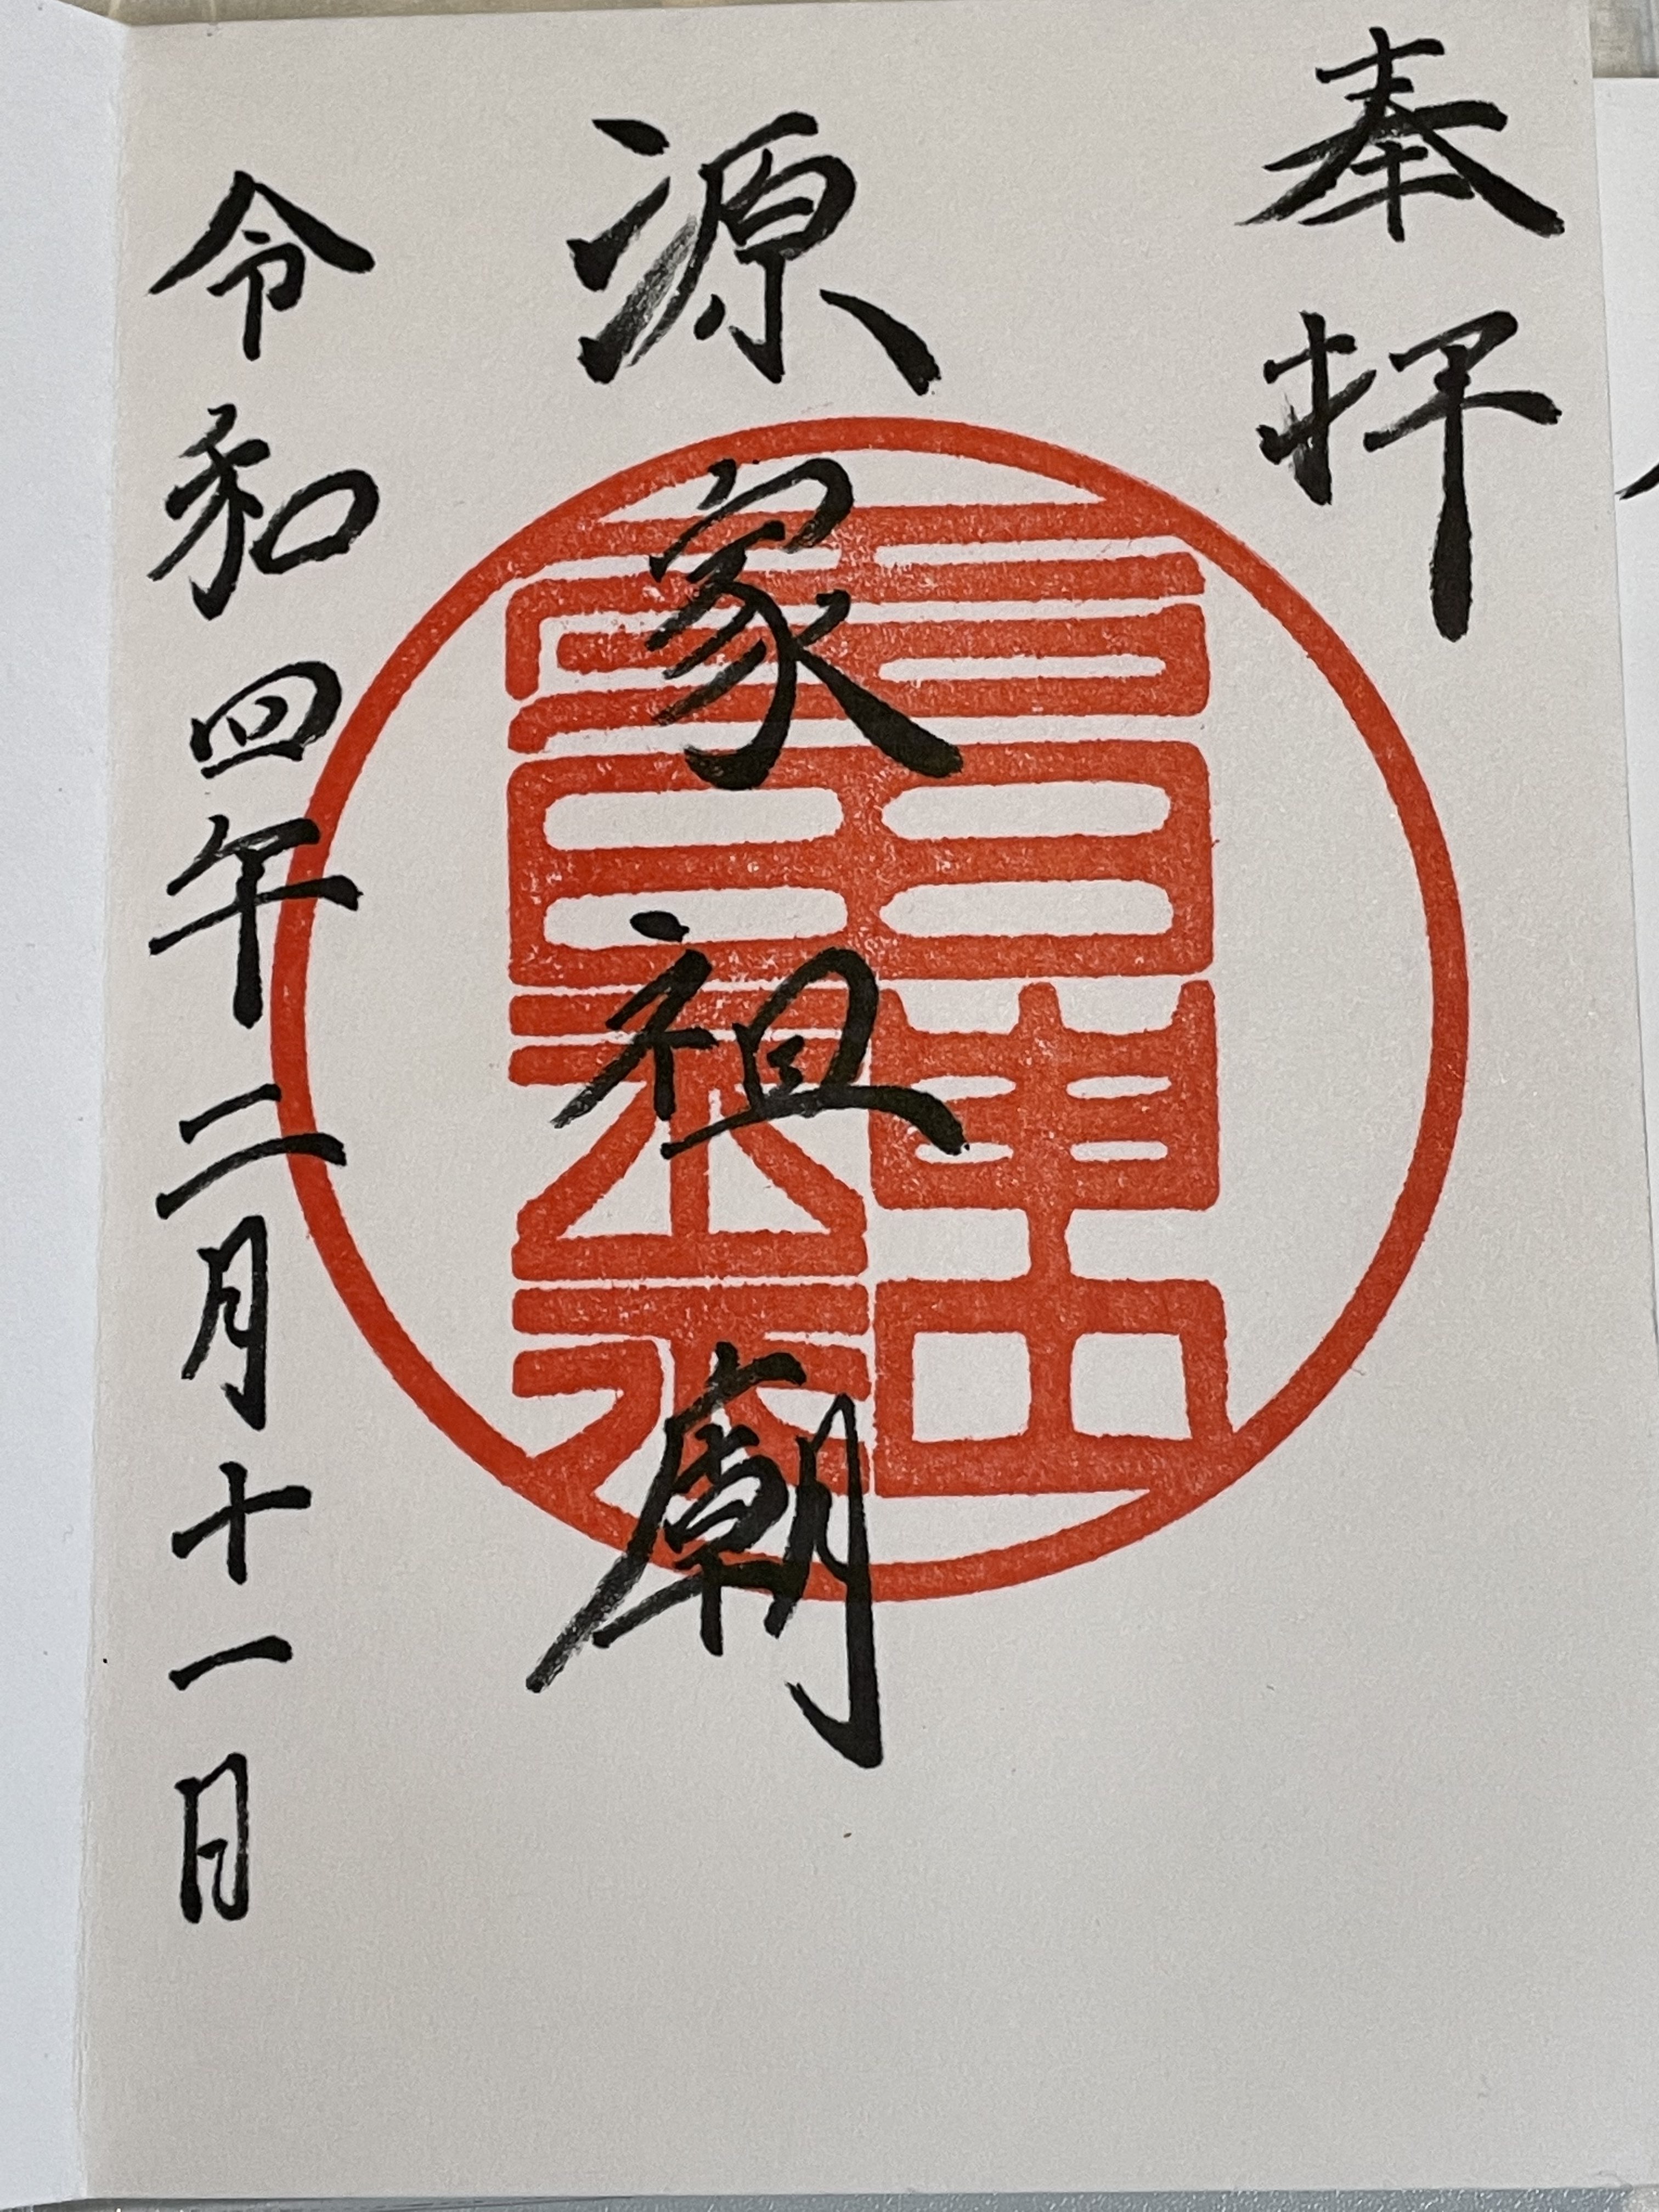 奉拝
源家祖廟
令和四年二月十一日